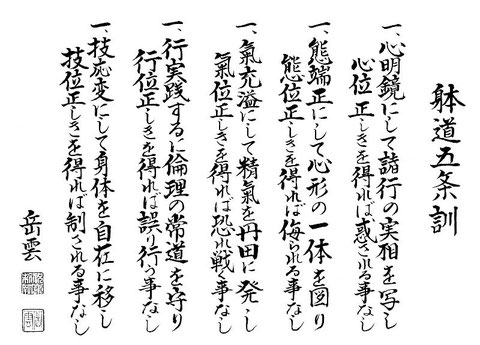 躰道五条訓
一、心明鏡にして諸行の実相を写し
心位正しきを得れば惑される事なし
一、態端正にして心形の一体を図り
態位正しきを得れば侮られる事なし
一、氣充溢にして精氣を丹田に発し
氣位正しきを得れば恐れ戦く事なし
一、行実践するに倫理の常道を守り
行位正しきを得れば誤り行う事なし
一、技応変にして身体を自在に移し
技位正しきを得れば制される事なし
岳雲